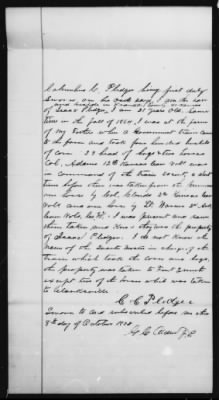 Columbus C. Pledger being first duly
sworn on his oath says, I am the son
and reside in Franklin County Arkansas
of Isaac Pledger, I am 21 years old. Some
time in the fall of 1864, I was at the farm
of my Father when a Government train came
to the farm and took four hundred bushels
of corn - 23 head of hogs & two horses
Col. Adams 12th Kansas Col was
in command of the train escort, a short
time before this was taken from the
one horse by Col. Clouds 2d Kansas Cav
Vols and one horse by Lt
Vols, Co H. I was present and saw
them taken and know they were the property
of Isaac Pledger. I do not know the
name of the Quarter master in charge of the
train which took the corn and hogs,
the property was taken to Fort Smith
except two of the horses which was taken
to Clarksville
C. C. Pledger
Sworn to and subscribed before me this
8th day of October 1872
J.P.